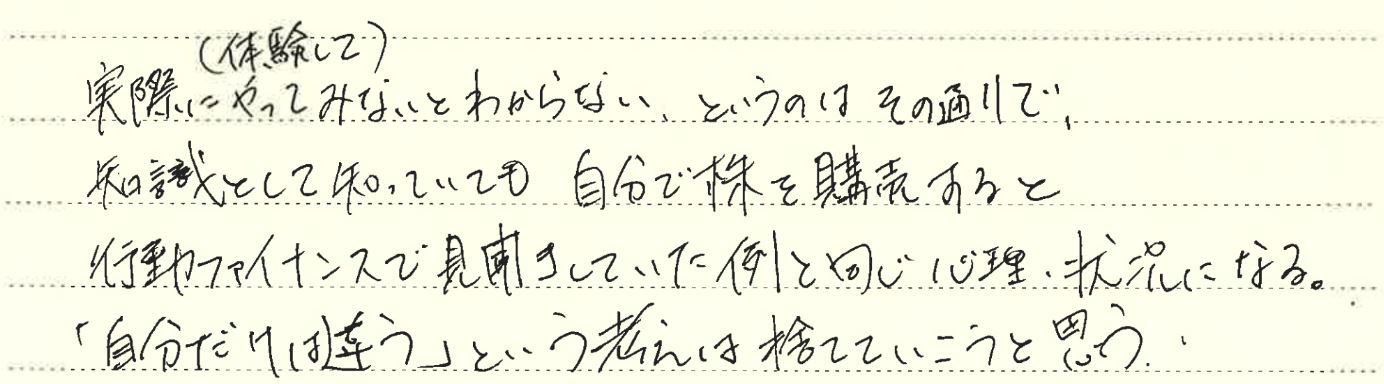 (体験して)
実際にやってみないとわからない、というのは その通りで、
知識として知っていても 自分で株を購売すると
行動ファイナンスで見聞きしていた例と同じ心理・状況になる。
「自分だけは違う」という考えは捨てていこうと思う.